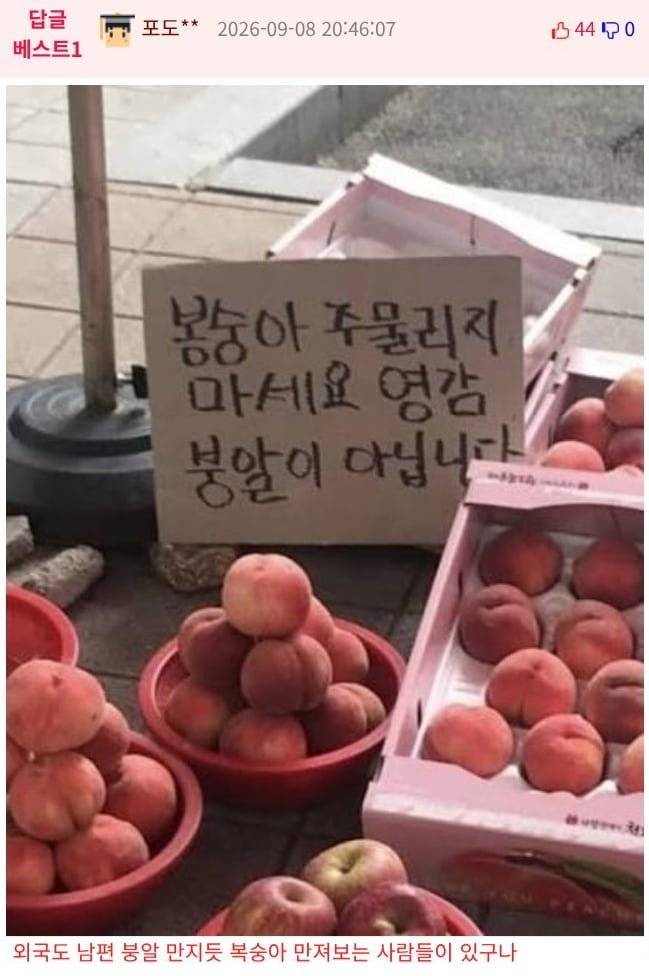 답글
베스트1
포도** 2026-09-08 20:46:07 44 0
봉숭아 주물리지
마세요 영감
붕알이 아닙니다
외국도 남편 붕알 만지듯 복숭아 만져보는 사람들이 있구나